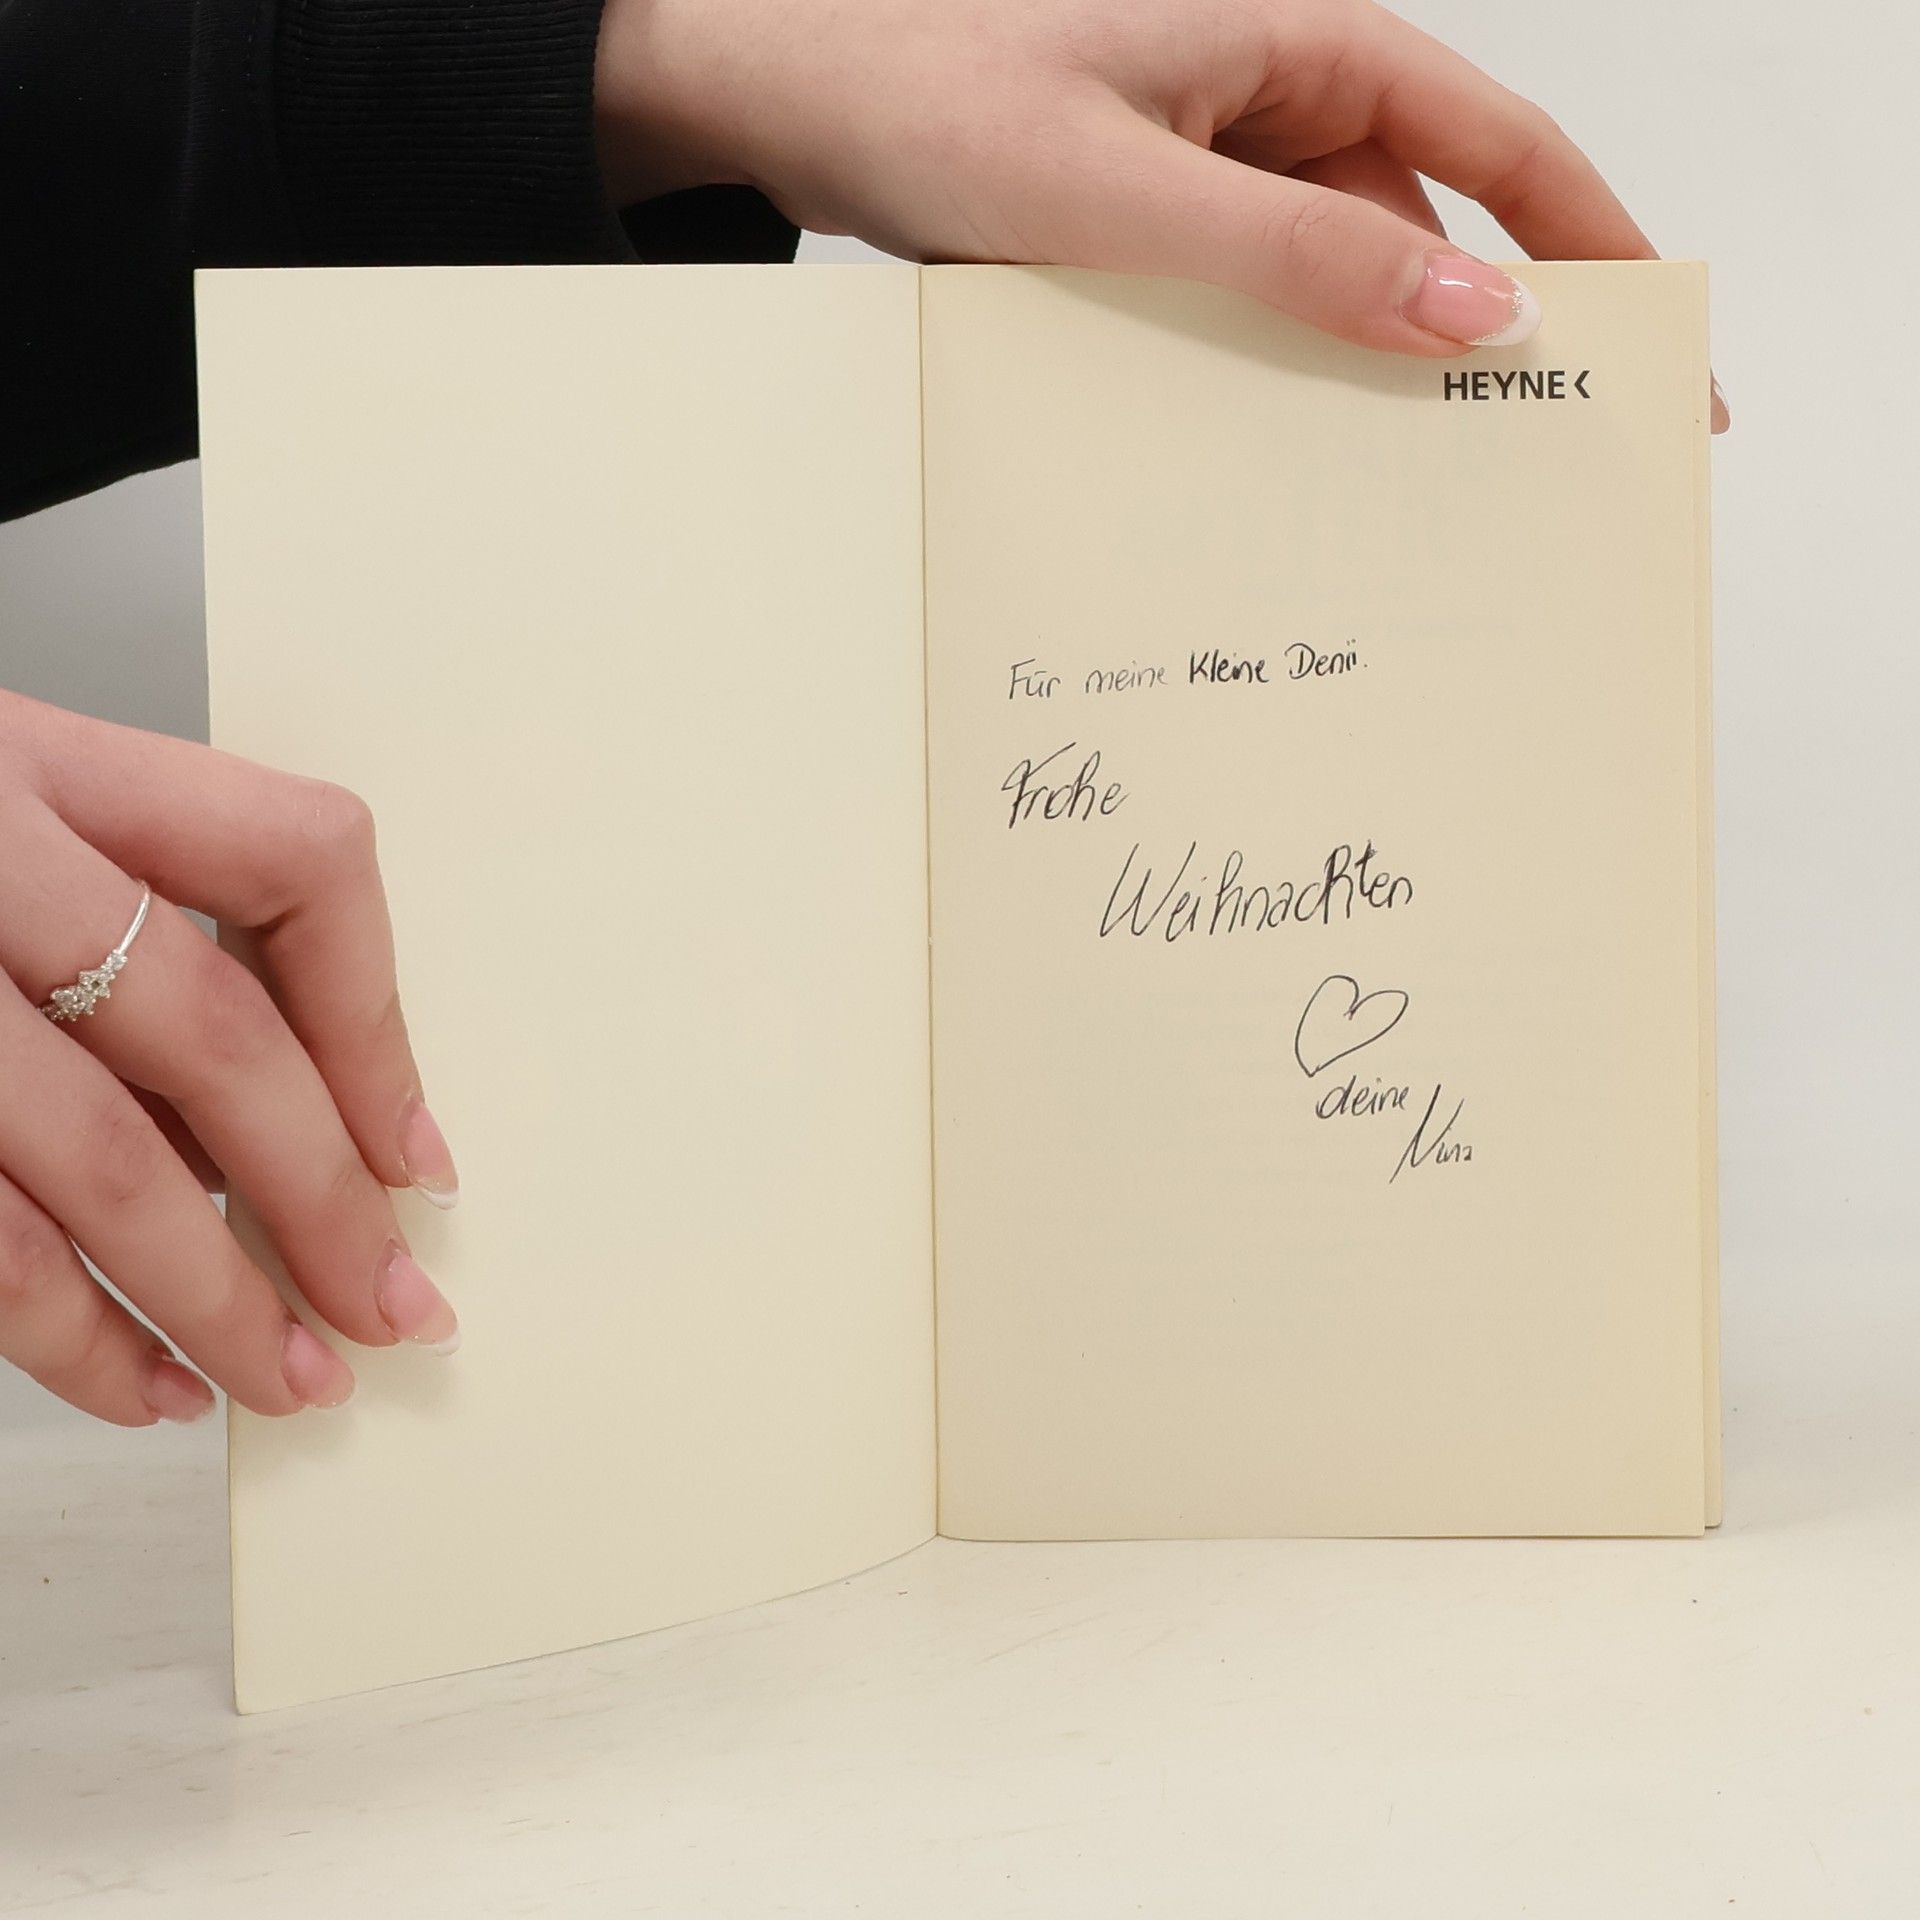 HEYNE<
Für meine Kleine Denii.
Frohe
Weihnachten
deine
Nina